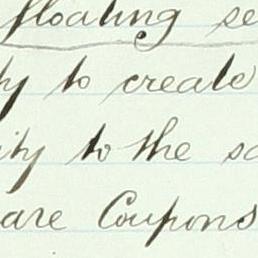 floating se
ty to create
ity to the sa
are Coupons